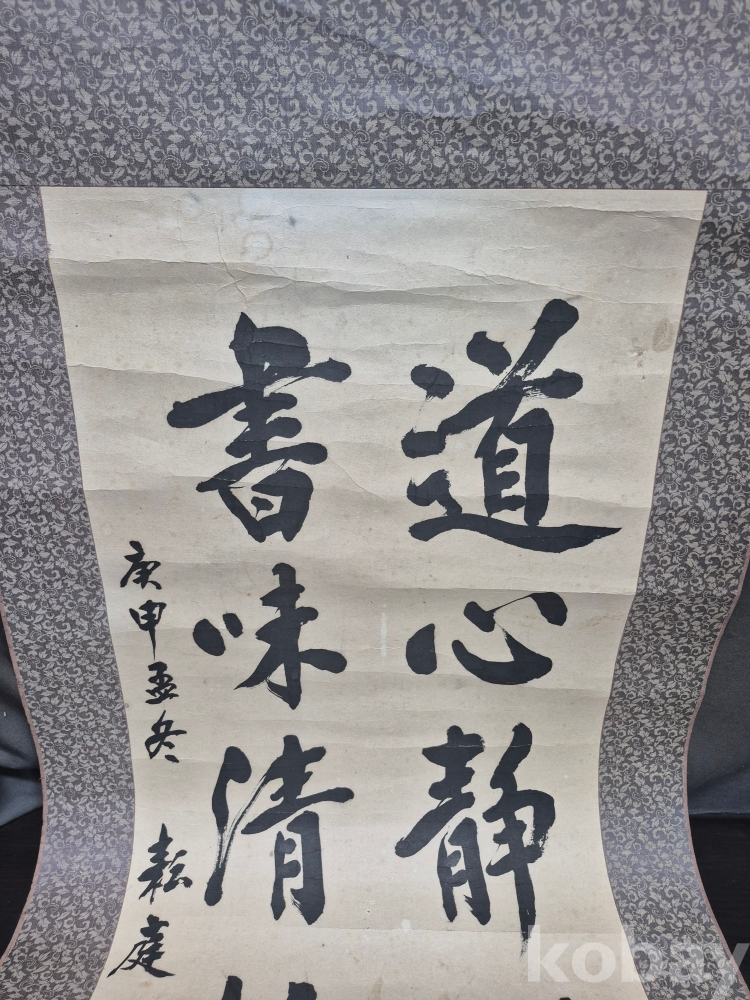 道心静
書味清
庚申孟冬 耘庭
kobay